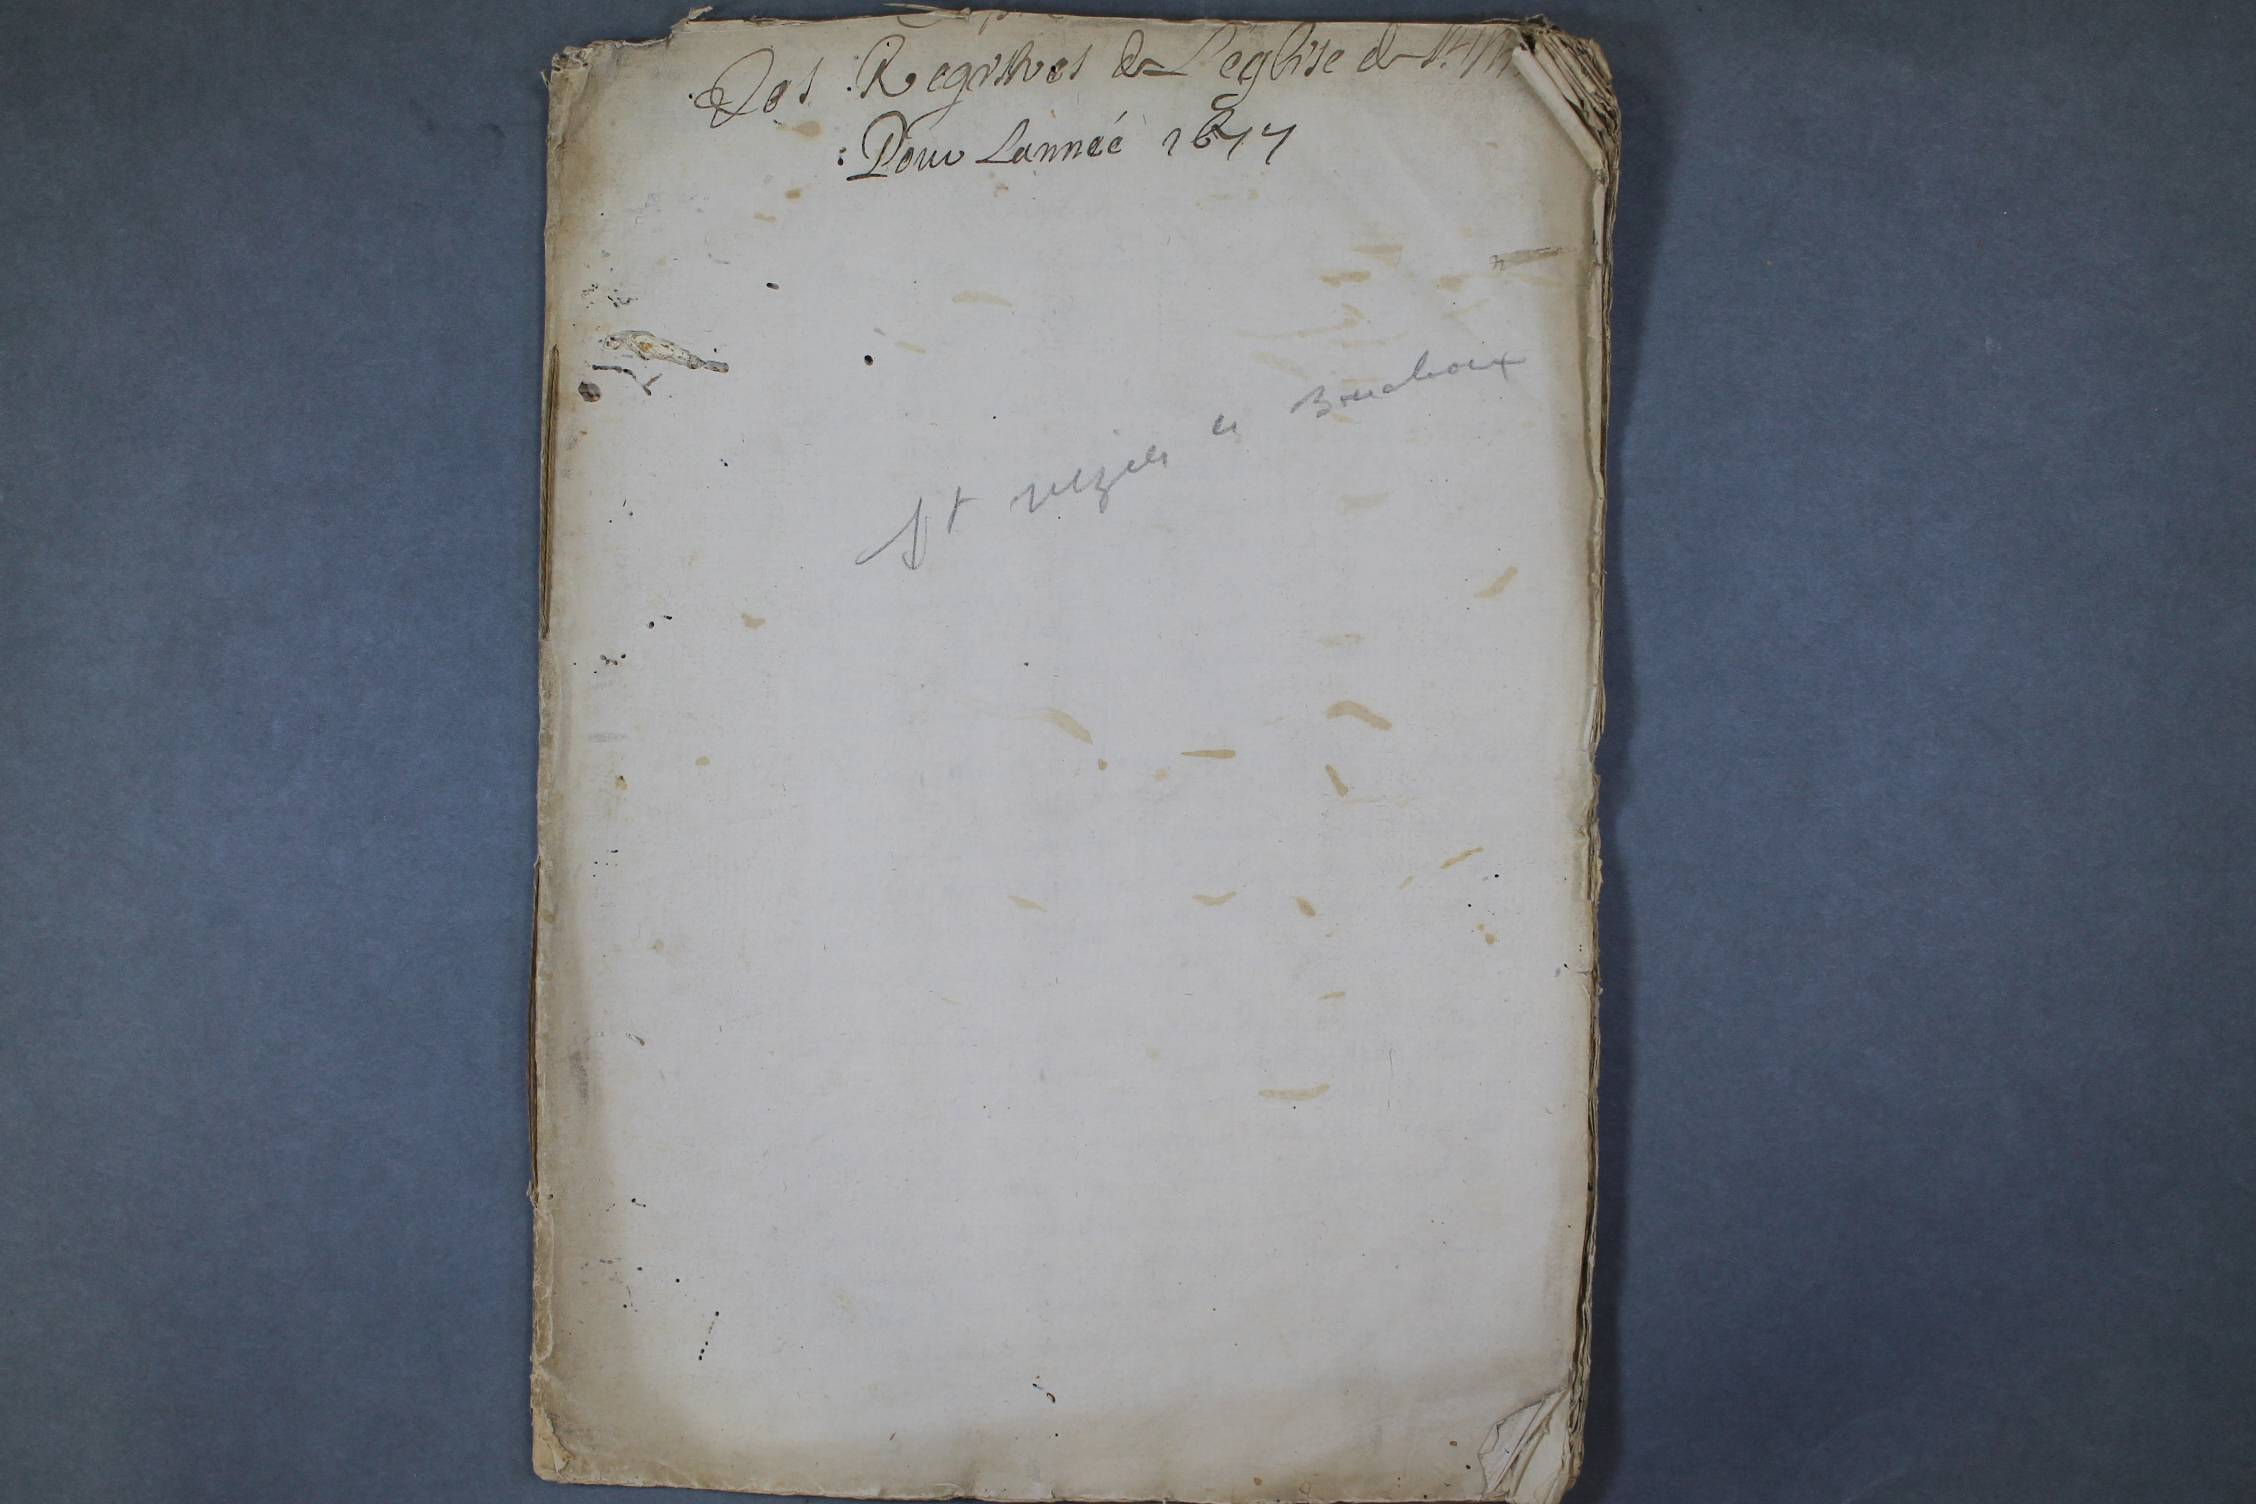 Des Registres de L'eglise de St
Pour Lannéé 1677
St Mezier de Boucheoux